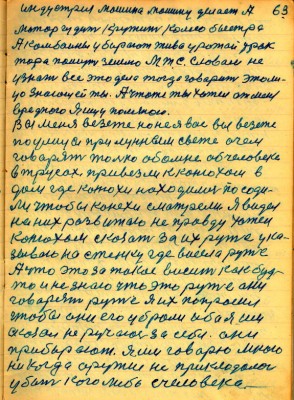 63
индустрия машина машину делает А
мотор гудит крутит колесо быстра
А комбайны убирают жива урожай трак
тора пашут землю М.Т.С. Словом не
узнать все это дело тогда говарят этом
цо знакомей ты. А што ты хочеш от меня
вредного Я ищу
Вы меня везете коне я вас вы везете
по улицы при лунным свете о чем
говарят толко обомне об человеке
в трусах привезли к конюхом в
дом где конюхи находимця посоди
ли чтобы конехи сматрели Я видел
на них развитаю не правду хотел
конюхом сказат за их ружя ука
зываю на стенку где висела ружя
А что это за такае висит как буд
то и не знаю что это ружя ани
говарят ружя я их попросил
чтобы они его убрали ибая им
сказал не ручаюс за себя. ани
прибирают. Я им говарю много
никогда оружи не прикладало
убит кого либо с человека.